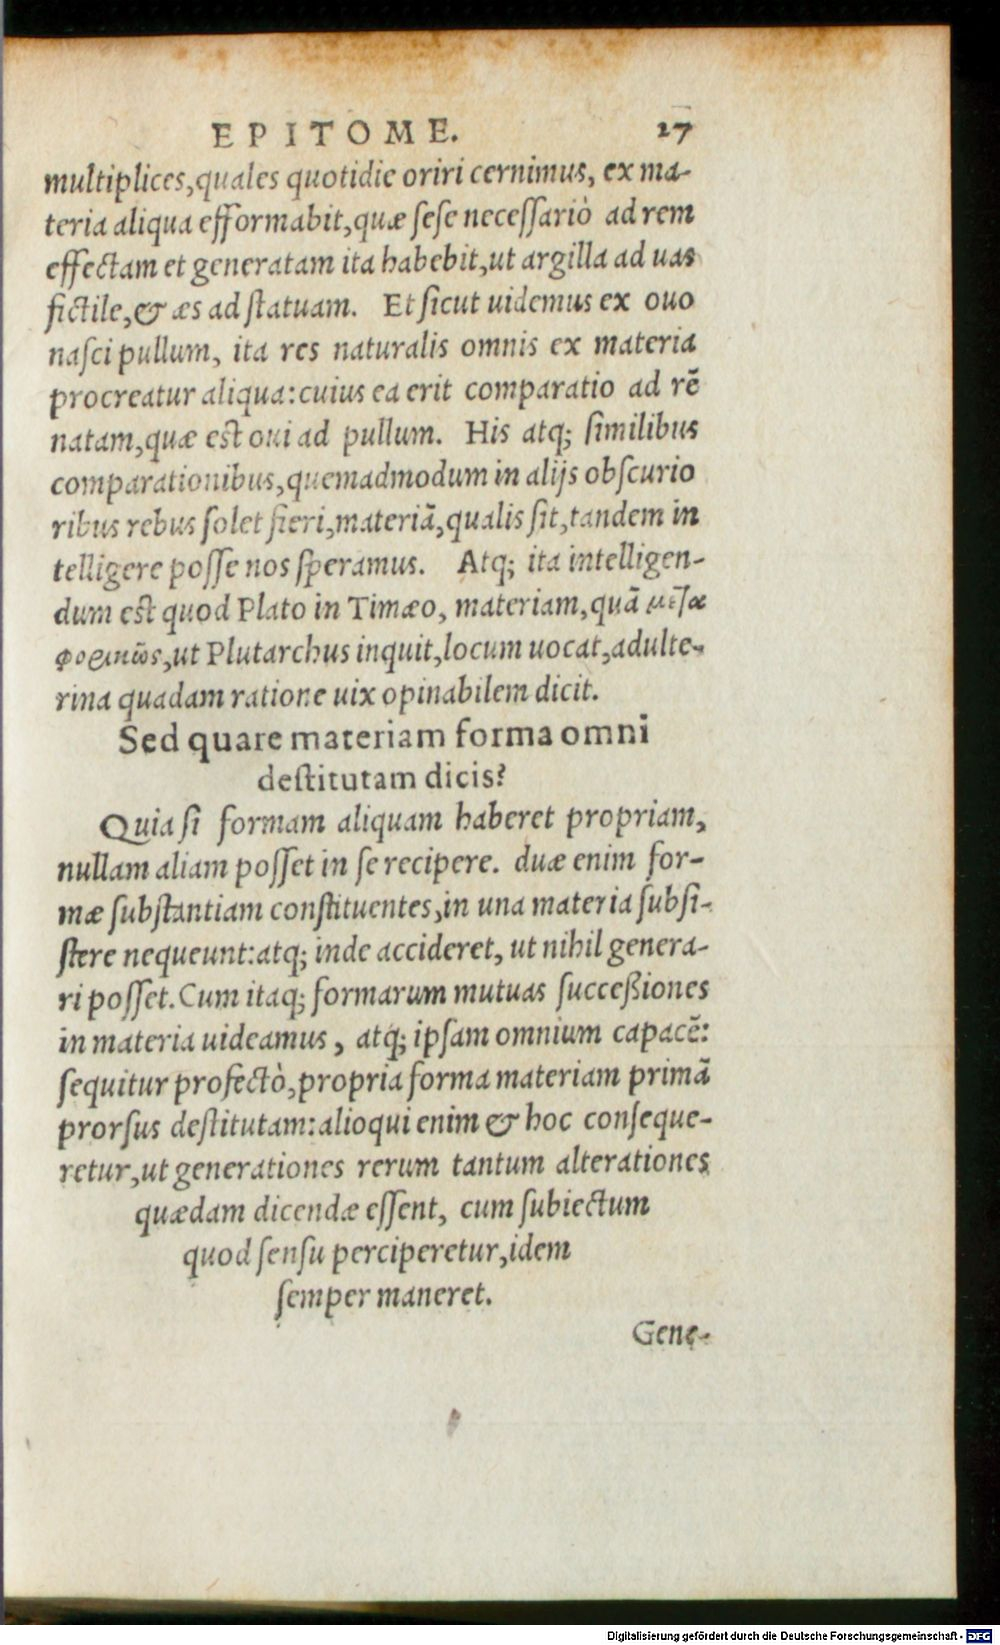 EPITOME. 27
multiplices, quales quotidie oriri cernimus, ex ma-
teria aliqua efformabit, quæ sese necessariò ad rem
effectam et generatam ita habebit, ut argilla ad uas
fictile, & æs ad statuam. Et sicut uidemus ex ouo
nasci pullum, ita res naturalis omnis ex materia
procreatur aliqua: cuius ea erit comparatio ad rē
natam, quæ est oui ad pullum. His atq; similibus
comparationibus, quemadmodum in alijs obscurio
ribus rebus solet fieri, materiā, qualis sit, tandem in
telligere posse nos speramus. Atq; ita intelligen-
dum est quod Plato in Timæo, materiam, quā μετα
φορικῶς, ut Plutarchus inquit, locum uocat, adulte-
rina quadam ratione uix opinabilem dicit.
Sed quare materiam forma omni
destitutam dicis?
Quia si formam aliquam haberet propriam,
nullam aliam posset in se recipere. duæ enim for-
mæ substantiam constituentes, in una materia subsi-
stere nequeunt: atq; inde accideret, ut nihil genera-
ri posset. Cum itaq; formarum mutuas succeßiones
in materia uideamus, atq; ipsam omnium capacē:
sequitur profectò, propria forma materiam primā
prorsus destitutam: alioqui enim & hoc conseque-
retur, ut generationes rerum tantum alterationes
quædam dicendæ essent, cum subiectum
quod sensu perciperetur, idem
semper maneret.
Gene-
Digitalisierung gefördert durch die Deutsche Forschungsgemeinschaft - DFG